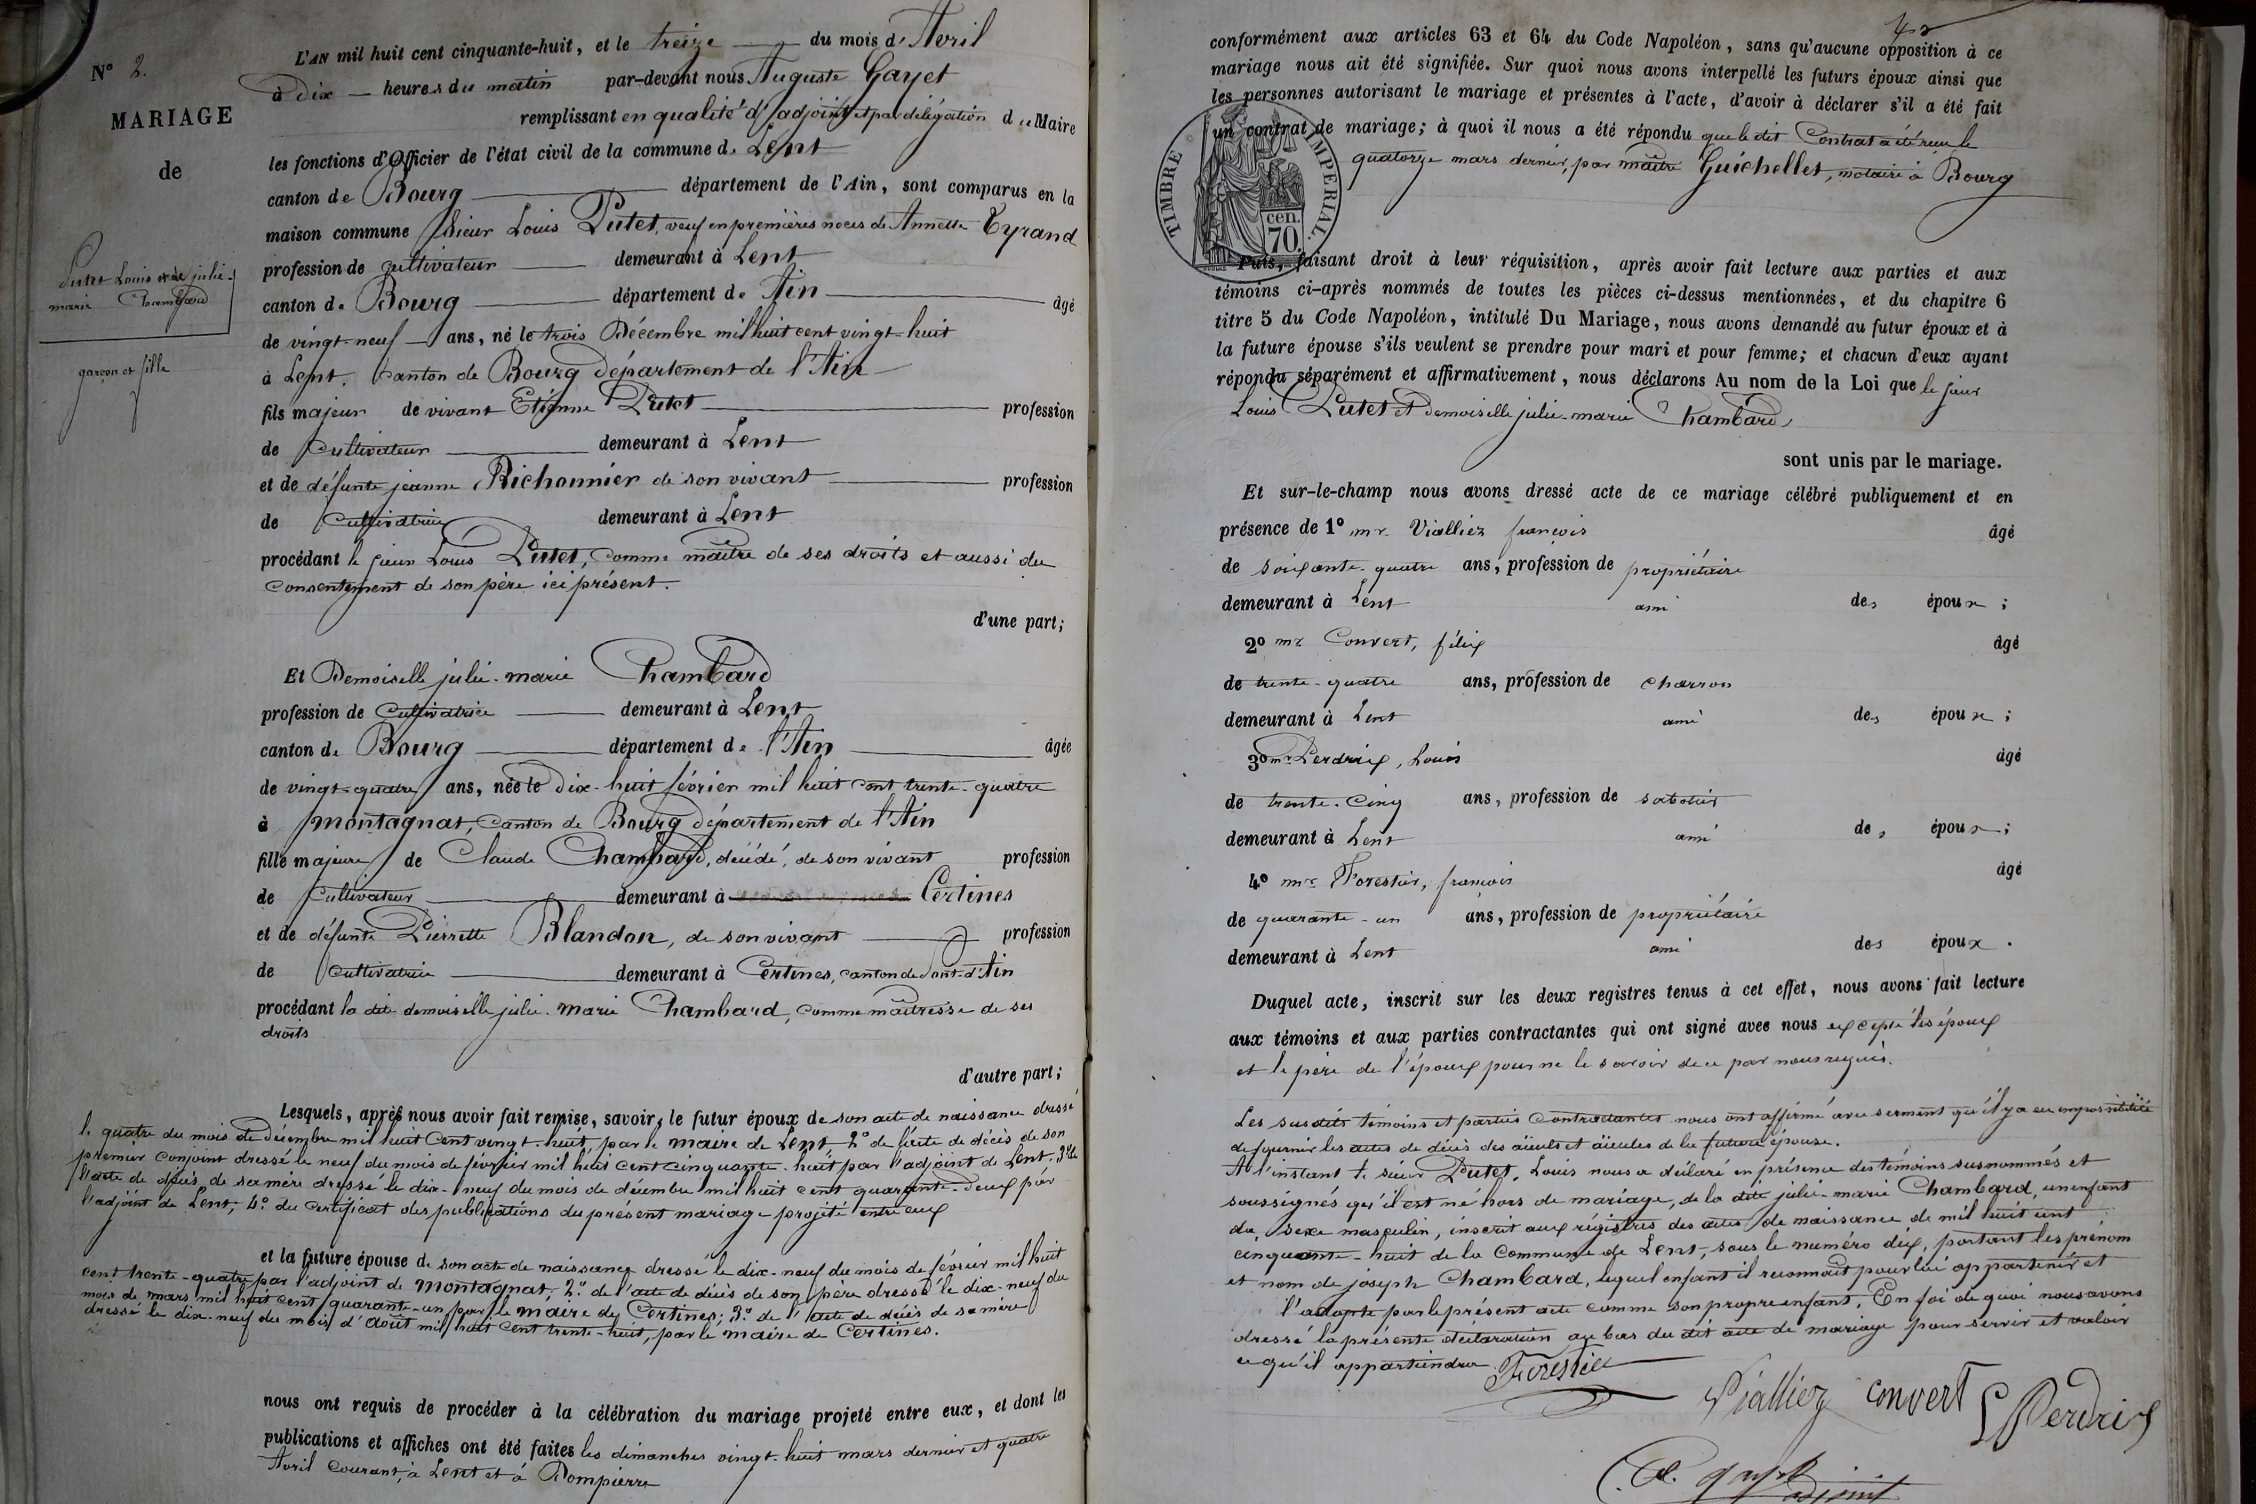 N° 2.
MARIAGE
de
Putet Louis et de julie-
marie Chambard
garçon et fille
L'AN mil huit cent cinquante-huit, et le treize du mois d'Avril
à Dix heures du matin par-devant nous Auguste Gayet
remplissant en qualité d'adjoint et par délégation du Maire
les fonctions d'Officier de l'état civil de la commune de Lent
canton de Bourg département de l'Ain, sont comparus en la
maison commune Sieur Louis Putet, veuf en premières noces de Annette Tyrand
profession de cultivateur demeurant à Lent
canton de Bourg département de Ain âgé
de vingt-neuf ans, né le trois Décembre mil huit cent vingt-huit
à Lent, Canton de Bourg Département de l'Ain
fils majeur de vivant Etienne Putet profession
de Cultivateur demeurant à Lent
et de défunte jeanne Richonnier de son vivant profession
de Cultivatrice demeurant à Lent
procédant le sieur Louis Putet, comme maître de ses droits et aussi du
consentement de son père ici présent.
d'une part;
Et Demoiselle julie-marie Chambard
profession de Cultivatrice demeurant à Lent
canton de Bourg département de l'Ain âgée
de vingt-quatre ans, née le Dix-huit février mil huit cent trente-quatre
à Montagnat, Canton de Bourg Département de l'Ain
fille majeure de Claude Chambard, décédé, de son vivant profession
de Cultivateur demeurant à Certines
et de défunte Pierrette Blandon, de son vivant profession
de Cultivatrice demeurant à Certines, canton de Pont-d'Ain
procédant la dite demoiselle julie-marie Chambard, comme maîtresse de ses
droits
d'autre part;
Lesquels, après nous avoir fait remise, savoir, le futur époux de son acte de naissance dressé
le quatre du mois de décembre mil huit cent vingt-huit, par le maire de Lent 2° de l'acte de décès de son
premier conjoint dressé le neuf du mois de février mil huit cent cinquante-huit par l'adjoint de Lent, 3° de
l'acte de décès de sa mère dressé le dix-neuf du mois de décembre mil huit cent quarante-deux par
l'adjoint de Lent; 4° du certificat des publications du présent mariage projeté entre eux
et la future épouse de son acte de naissance dressé le dix-neuf du mois de février mil huit
cent trente-quatre par l'adjoint de Montagnat, 2° de l'acte de décès de son père dressé le dix-neuf du
mois de mars mil huit cent quarante-un par le maire de Certines; 3° de l'acte de décès de sa mère
dressé le dix-neuf du mois d'août mil huit cent trente-huit, par le maire de Certines.
nous ont requis de procéder à la célébration du mariage projeté entre eux, et dont les
publications et affiches ont été faites les dimanches vingt-huit mars dernier et quatre
Avril courant, à Lent et à Dompierre
42
conformément aux articles 63 et 64 du Code Napoléon, sans qu'aucune opposition à ce
mariage nous ait été signifiée. Sur quoi nous avons interpellé les futurs époux ainsi que
les personnes autorisant le mariage et présentes à l'acte, d'avoir à déclarer s'il a été fait
un contrat de mariage; à quoi il nous a été répondu que le dit Contrat a été reçu le
quatorze mars dernier, par maître Guichellet, notaire à Bourg
TIMBRE IMPERIAL.
cen.
70.
Puis, faisant droit à leur réquisition, après avoir fait lecture aux parties et aux
témoins ci-après nommés de toutes les pièces ci-dessus mentionnées, et du chapitre 6
titre 5 du Code Napoléon, intitulé Du Mariage, nous avons demandé au futur époux et à
la future épouse s'ils veulent se prendre pour mari et pour femme; et chacun d'eux ayant
répondu séparément et affirmativement, nous déclarons Au nom de la Loi que le sieur
Louis Putet et demoiselle julie-marie Chambard,
sont unis par le mariage.
Et sur-le-champ nous avons dressé acte de ce mariage célébré publiquement et en
présence de 1° mr. Vialliez françois âgé
de soixante-quatre ans, profession de propriétaire
demeurant à Lent ami des époux;
2° mr Convert, félix âgé
de trente-quatre ans, profession de charron
demeurant à Lent ami des époux;
3° mr Perdrix, Louis âgé
de trente-cinq ans, profession de sabotier
demeurant à Lent ami des époux;
4° mr Forestier, françois âgé
de quarante-un ans, profession de propriétaire
demeurant à Lent ami des époux.
Duquel acte, inscrit sur les deux registres tenus à cet effet, nous avons fait lecture
aux témoins et aux parties contractantes qui ont signé avec nous excepté les époux
et le père de l'époux pour ne le savoir de ce par nous requis.
Les susdits témoins et parties Contractantes nous ont affirmé avec serment qu'il y a eu impossibilité
de fournir les actes de décès des aïeuls et aïeules de la future épouse.
A l'instant le sieur Putet, Louis nous a déclaré en présence des témoins susnommés et
soussignés qu'il est né hors de mariage, de la dite julie-marie Chambard, un enfant
du sexe masculin, inscrit aux régistres des actes de naissance de mil huit cent
cinquante-huit de la Commune de Lent, sous le numéro dix, portant les prénom
et nom de joseph Chambard, lequel enfant il reconnaît pour lui appartenir et
l'adopte par le présent acte comme son propre enfant. En foi de quoi nous avons
dressé la présente déclaration au bas du dit acte de mariage pour servir et valoir
ce qu'il appartiendra.
Forestier
Vialliez Convert L Perdrix
A. Gayet
adjoint